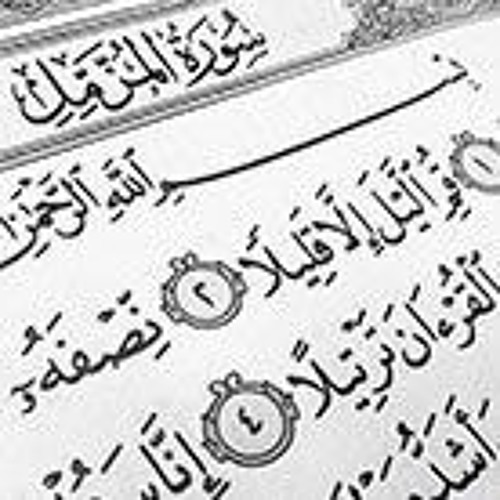 سُورَةُ الْمُزَّمِّلِ
بِسْمِ اللَّهِ الرَّحْمَٰنِ
١ قُمِ اللَّيْلَ إِلَّا قَلِيلًا ٢ نِصْفَهُ
الْقُرْءَانَ تَرْتِيلًا ٤ إِنَّا
أَشَدُّ